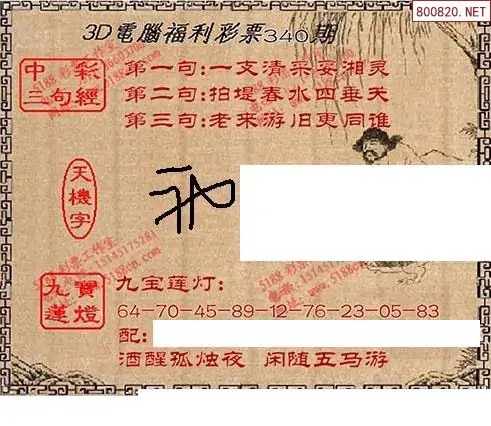 800820.NET
3D電腦福利彩票340期
中彩三句經
第一句:一支清采妥湘灵
第二句:拍堤春水四垂天
第三句:老来游旧更同谁
天機字
九寶蓮燈
九宝莲灯:
64-70-45-89-12-76-23-05-83
配:
酒醒孤烛夜 闲随五马游